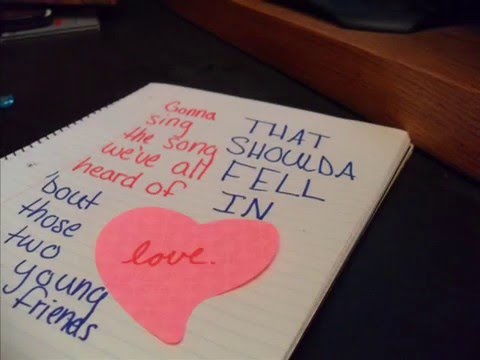 Gonna
sing
the song
we've all
heard of
'bout
those
two
young
friends
THAT
SHOULDA
FELL
IN
love.